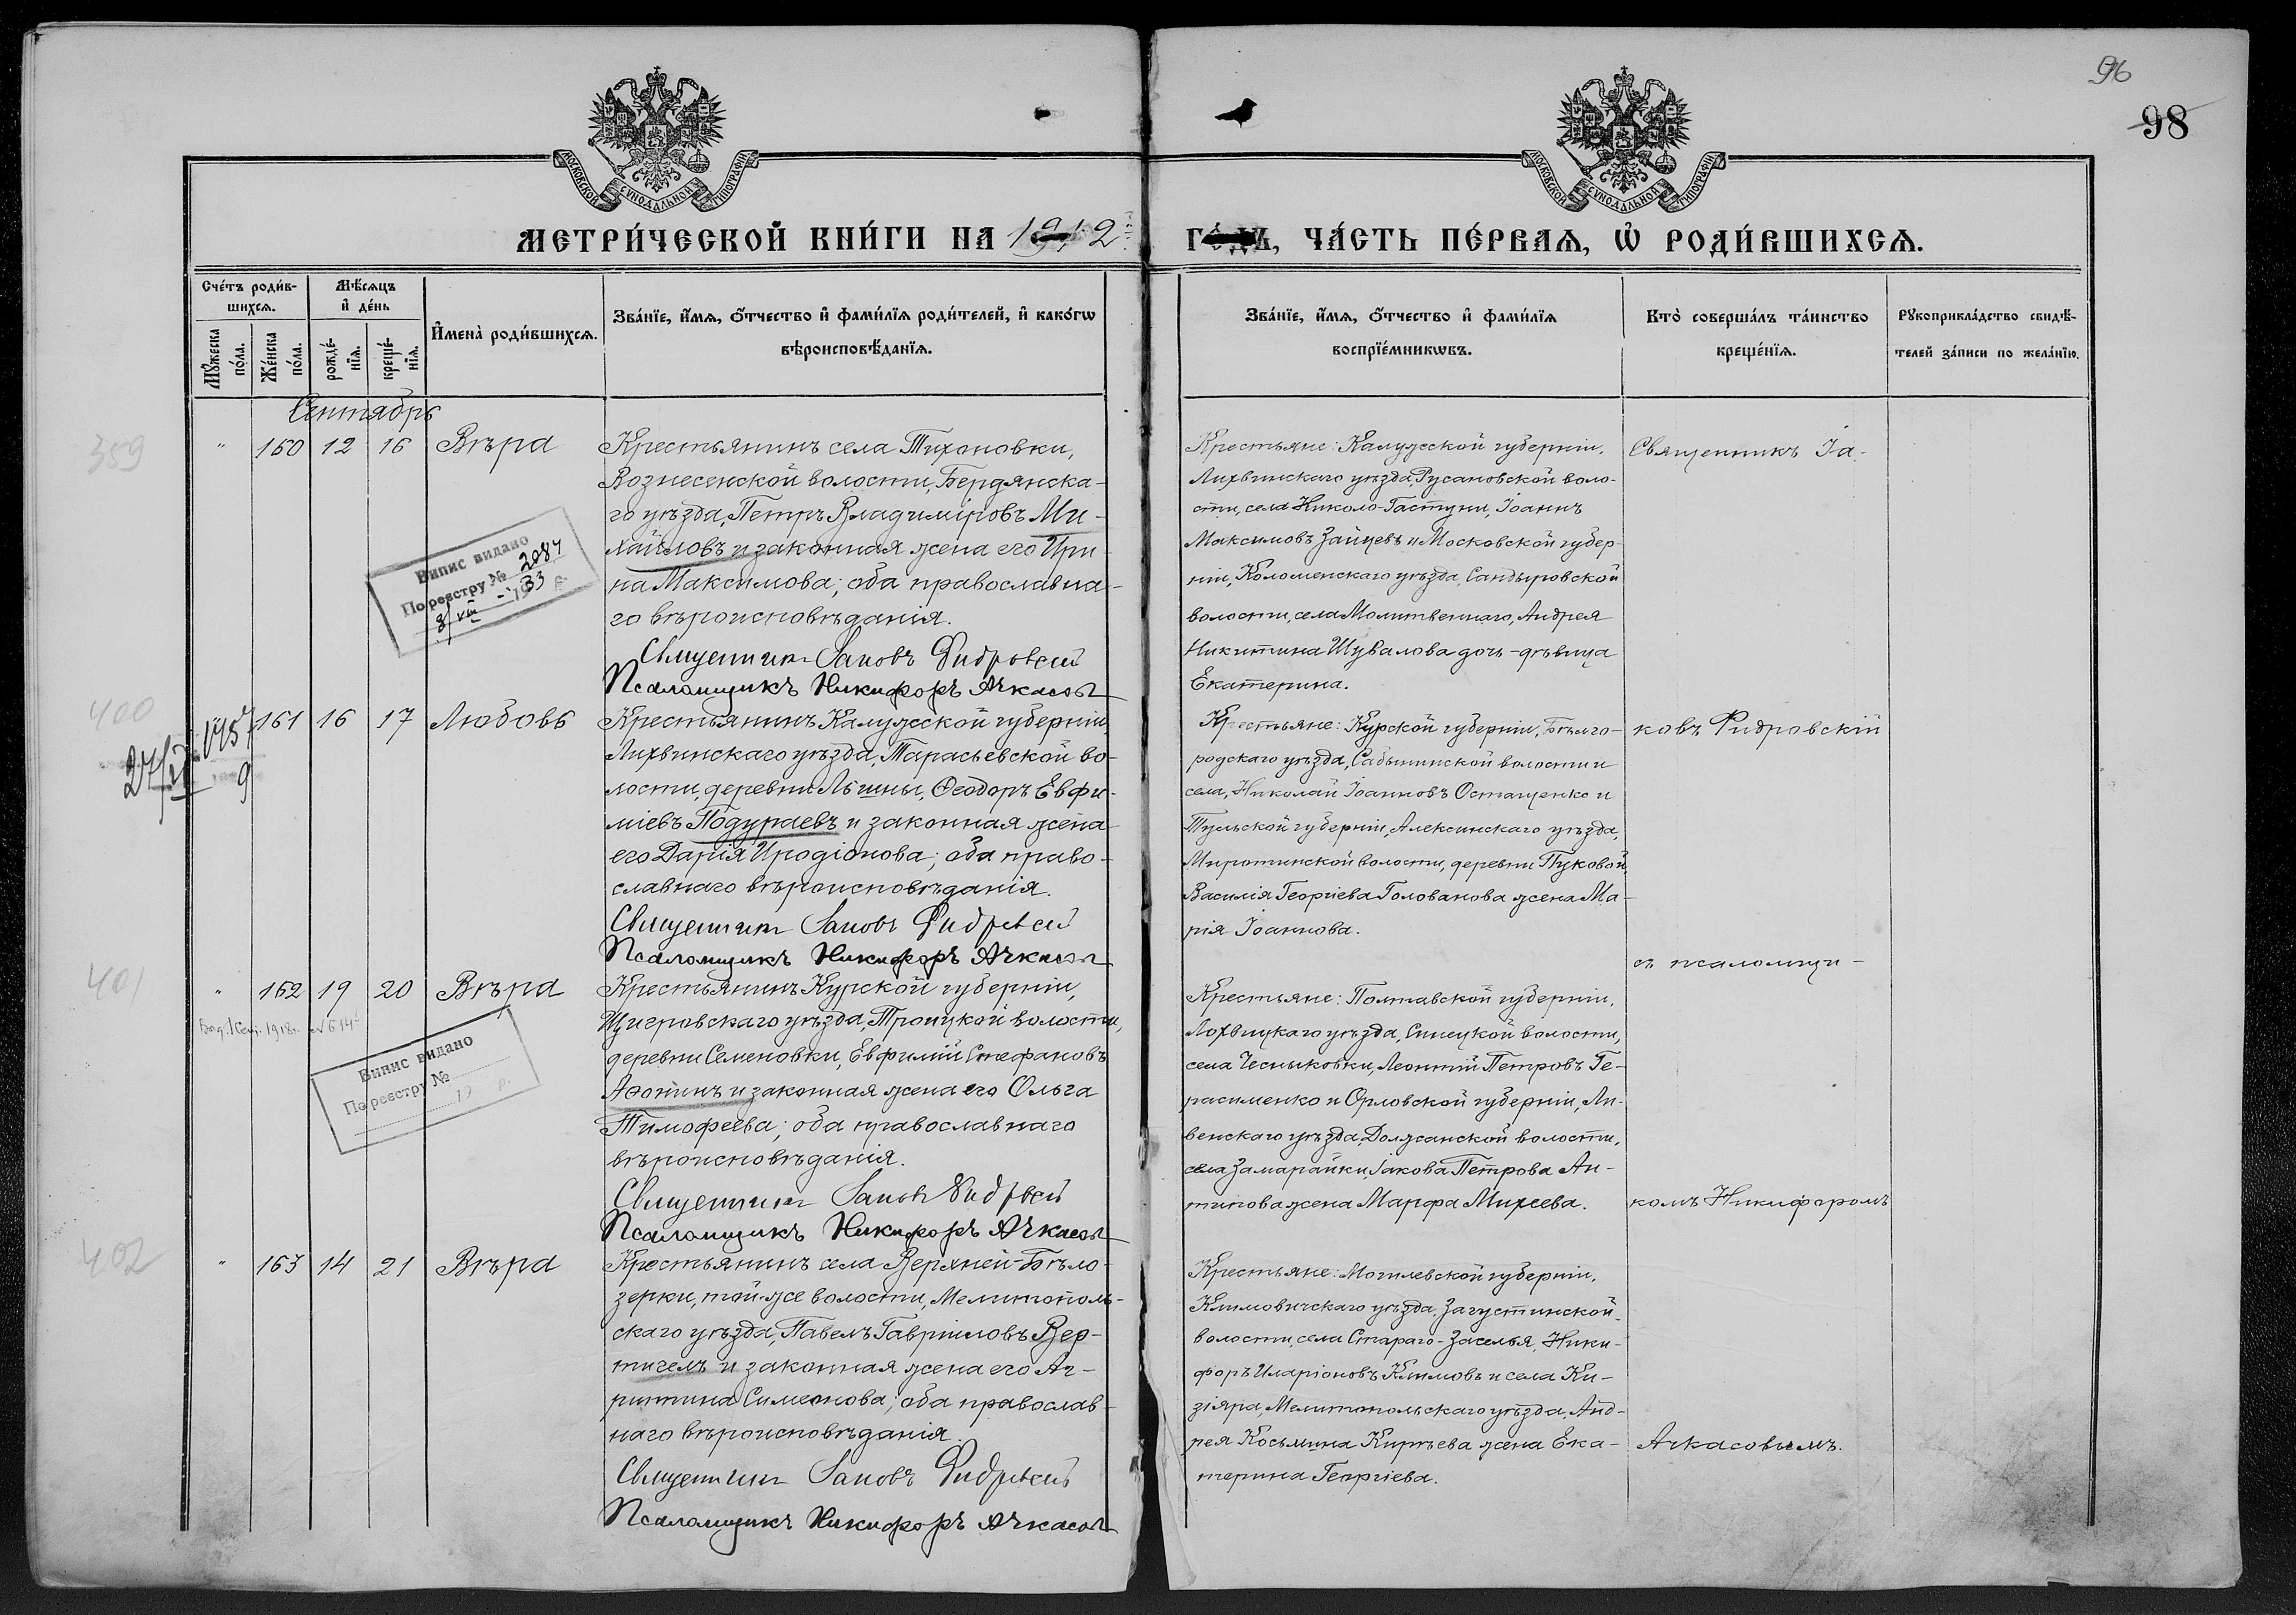 96
98
МОСКОВСКОЙ СѴНОДАЛЬНОЙ ТИПОГРАФІИ
МОСКОВСКОЙ СѴНОДАЛЬНОЙ ТИПОГРАФІИ
МЕТРИ́ЧЕСКОЙ КНИ́ГИ НА 1912 ГО́ДЪ, ЧА́СТЬ ПЕ́РВАѦ, Ѡ҆ РОДИ́ВШИХСѦ.
Сче́тъ роди́в-
шихсѧ.
Мꙋ́жеска по́ла.
Же́нска по́ла.
Мѣ́сѧцъ
и҆ де́нь
рожде́-
нїѧ.
креще́-
нїѧ.
И҆мена̀ роди́вшихсѧ.
Зва́нїе, и҆́мѧ, ѻ҆́тчество и҆ фами́лїѧ роди́телей, и҆ како́гѡ
вѣроисповѣ́данїѧ.
Зва́нїе, и҆́мѧ, ѻ҆́тчество и҆ фами́лїѧ
воспрїе́мникѡвъ.
Кто̀ соверша́лъ та́инство
креще́нїѧ.
Рꙋкоприкла́дство свидѣ́-
телей за́писи по жела́нїю.
Сентябрь
359
" 160 12 16 Вѣра
Крестьянинъ села Тихоновки,
Вознесенской волости, Бердянска-
го уѣзда, Петръ Владиміровъ Ми-
хайловъ и законная жена его Ири-
на Максимова; оба православна-
го вѣроисповѣданія.
Священникъ Іаковъ Фидровскій
Псаломщикъ Никифоръ Ачкасовъ
Випис видано
По реєстру № 2084
8/VIII - 1933 р.
Крестьяне: Калужской губерніи,
Лихвинскаго уѣзда, Русановской воло-
сти, села Николо-Гастуни, Іоаннъ
Максимовъ Зайцевъ и Московской губер-
ніи, Коломенскаго уѣзда, Сандыровской
волости, села Молитвеннаго, Андрея
Никитина Шувалова дочь-дѣвица
Екатерина.
Священникъ Іа-
400
161 16 17 Любовь
Крестьянинъ Калужской губерніи,
Лихвинскаго уѣзда, Тарасьевской во-
лости, деревни Лѣшны, Ѳеодоръ Евфи-
міевъ Подураевъ и законная жена
его Дарія Иродіонова; оба право-
славнаго вѣроисповѣданія.
Священникъ Іаковъ Фидровскій
Псаломщикъ Никифоръ Ачкасовъ
Крестьяне: Курской губерніи, Бѣлго-
родскаго уѣзда, Сабынинской волости и
села, Николай Іоанновъ Остащенко и
Тульской губерніи, Алексинскаго уѣзда,
Миротинской волости, деревни Пуковой,
Василія Георгіева Голованова жена Ма-
рія Іоаннова.
ковъ Фидровскій
съ псаломщи-
401
" 162 19 20 Вѣра
Выд. 1918г. №614
Крестьянинъ Курской губерніи,
Щигровскаго уѣзда, Троицкой волости,
деревни Семеновки, Евфимій Стефановъ
Аѳонинъ и законная жена его Ольга
Тимофеева; оба православнаго
вѣроисповѣданія.
Священникъ Іаковъ Фидровскій
Псаломщикъ Никифоръ Ачкасовъ
Випис видано
По реєстру №
19 р.
Крестьяне: Полтавской губерніи,
Лохвицкаго уѣзда, Синецкой волости,
села Чесныковки, Леонтій Петровъ Ге-
расименко и Орловской губерніи, Ли-
венскаго уѣзда, Должанской волости,
села Замарайки, Іакова Петрова Ан-
типова жена Марфа Михеева.
комъ Никифоромъ
402
" 163 14 21 Вѣра
Крестьянинъ села Верхней-Бѣло-
зерки, той-же волости, Мелитополь-
скаго уѣзда, Павелъ Гавріиловъ Вер-
тигелъ и законная жена его Аг-
рипина Симеонова; оба православ-
наго вѣроисповѣданія.
Священникъ Іаковъ Фидровскій
Псаломщикъ Никифоръ Ачкасовъ
Крестьяне: Могилевской губерніи,
Климовичскаго уѣзда, Загустинской
волости, села Стараго-Заселья, Ники-
форъ Иларіоновъ Климовъ и села Ки-
зіяра, Мелитопольскаго уѣзда, Анд-
рея Косьмина Кирѣева жена Ека-
терина Георгіева.
Ачкасовымъ.